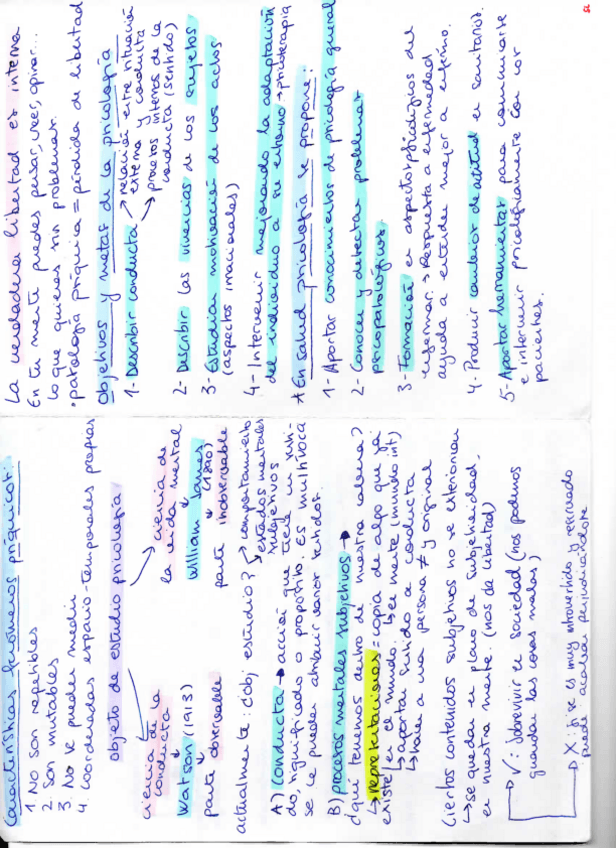 Características fenómenos psíquicos:
1. No son repetibles
2. Son mutables
3. No se pueden medir
4. Coordenadas espacio-temporales propias
objeto de estudio psicología
ciencia de la conducta
Watson (1913)
parte observable
ciencia de la vida mental
William James (1890)
parte inobservable
actualmente: ¿obj estudio? → comportamiento
→ estados mentales subjetivos
A) conducta → acción que tiene un sentido, significado o propósito. es multívoca
se le pueden atribuir varios sentidos.
B) procesos mentales subjetivos →
¿qué tenemos dentro de nuestra cabeza?
↳ representaciones = copia de algo que ya existe
↳ en el mundo ↳ en mente (mundo int)
↳ aportan sentido a conducta
↳ hace a una persona ≠ y original
Ciertos contenidos subjetivos no se exteriorizan
→ se quedan en plano de subjetividad,
en nuestra mente. (nos da libertad)
→ V: sobrevivir en sociedad (nos podemos
guardar las cosas malas)
→ X: si se es muy introvertido y reservado
puede acabar perjudicándote
La verdadera libertad es interna
En tu mente puedes pensar, creer, opinar...
lo que quieras sin problemas.
• patología psíquica = pérdida de libertad
Objetivos y metas de la psicología
1- Describir conducta → relación entre situación externa y conducta
→ procesos internos de la conducta (sentido)
2- Describir las vivencias de los sujetos
3- Estudiar motivación de los actos
(aspectos irracionales)
4- Intervenir mejorando la adaptación
del individuo a su entorno → psicoterapia
* En salud psicología se propone:
1- Aportar conocimientos de psicología general
2- Conocer y detectar problemas
psicopatológicos.
3- Formación en aspectos psicológicos del
enfermar. → Respuesta a enfermedad
ayuda a entender mejor a enfermo.
4- Producir cambios de actitud en sanitarios.
5- Aportar herramientas para comunicarse
e intervenir psicológicamente con los
pacientes.